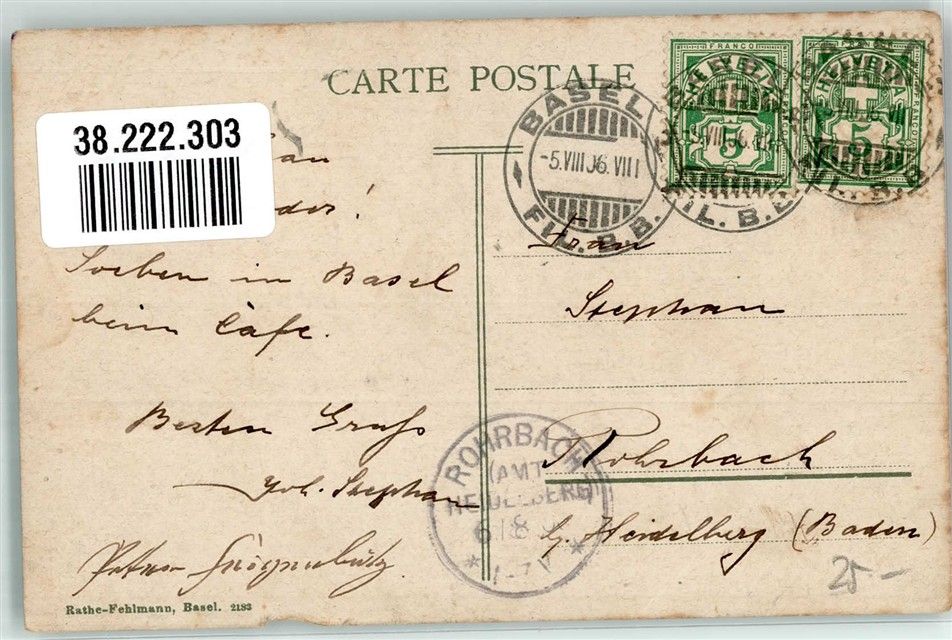 CARTE POSTALE
38.222.303
an
Soeben in Basel
beim Càfe.
Besten Gruß
Joh. Stephan
Rathe-Fehlmann, Basel. 2183
FRANCO
HELVETIA
5
FRANCO
HELVETIA
5
BASEL
-5.VIII 06.VIII
FIL. B. B.
Frau
Stephan
Rohrbach
b/. Heidelberg (Baden)
ROHRBACH
(AMT
HEIDELBERG)
6 8
1-2 V
25 -